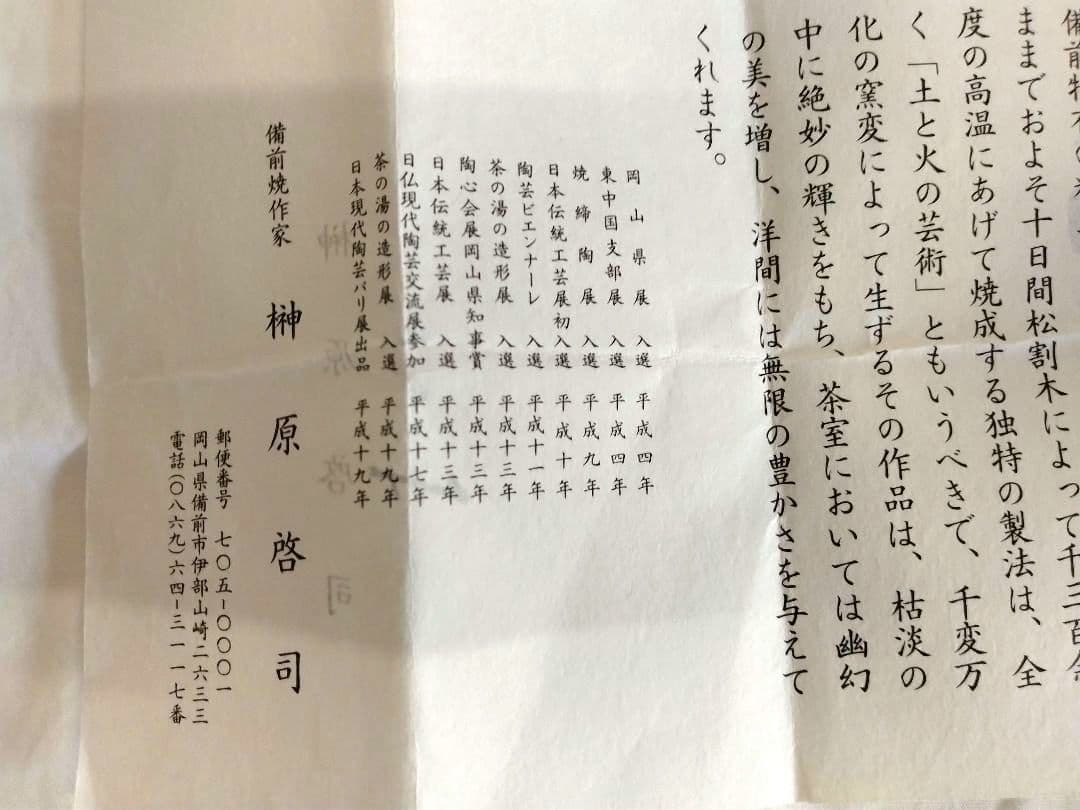 備前特
ままでおよそ十日間松割木によって千三百余
度の高温にあげて焼成する独特の製法は、全
く「土と火の芸術」ともいうべきで、千変万
化の窯変によって生ずるその作品は、枯淡の
中に絶妙の輝きをもち、茶室においては幽幻
の美を増し、洋間には無限の豊かさを与えて
くれます。
岡山県展 入選 平成四年
東中国支部展 入選 平成四年
焼締陶展 入選 平成九年
日本伝統工芸展初入選 平成十年
陶芸ビエンナーレ 入選 平成十一年
茶の湯の造形展 入選 平成十三年
陶心会展岡山県知事賞 平成十三年
日本伝統工芸展 入選 平成十三年
日仏現代陶芸交流展参加 平成十七年
茶の湯の造形展 入選 平成十九年
日本現代陶芸パリ展出品 平成十九年
備前焼作家 榊原啓司
郵便番号 七〇五-〇〇〇一
岡山県備前市伊部山崎二六三三
電話(〇八六九)六四-三一一七番